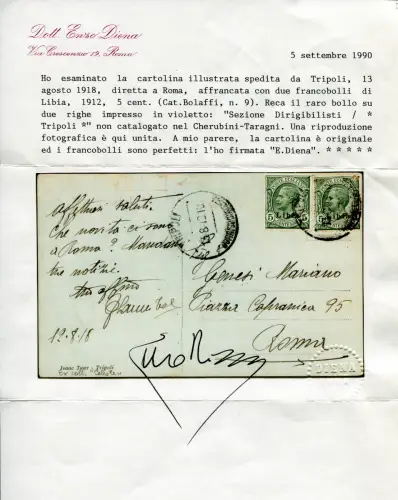 Dott. Enzo Diena
Via Crescenzio 19, Roma
5 settembre 1990
Ho esaminato la cartolina illustrata spedita da Tripoli, 13
agosto 1918, diretta a Roma, affrancata con due francobolli di
Libia, 1912, 5 cent. (Cat.Bolaffi, n. 9). Reca il raro bollo su
due righe impresso in violetto: "Sezione Dirigibilisti / *
Tripoli *" non catalogato nel Cherubini-Taragni. Una riproduzione
fotografica è qui unita. A mio parere, la cartolina è originale
ed i francobolli sono perfetti: l'ho firmata "E.Diena". * * * * *
affettuosi saluti.
Che novità ci sono
a Roma? Mandami
tue notizie.
tuo affmo
12.8/18
5 5
Libia
Mariano
Piazza Capranica 95
Roma
DIENA
Tripoli